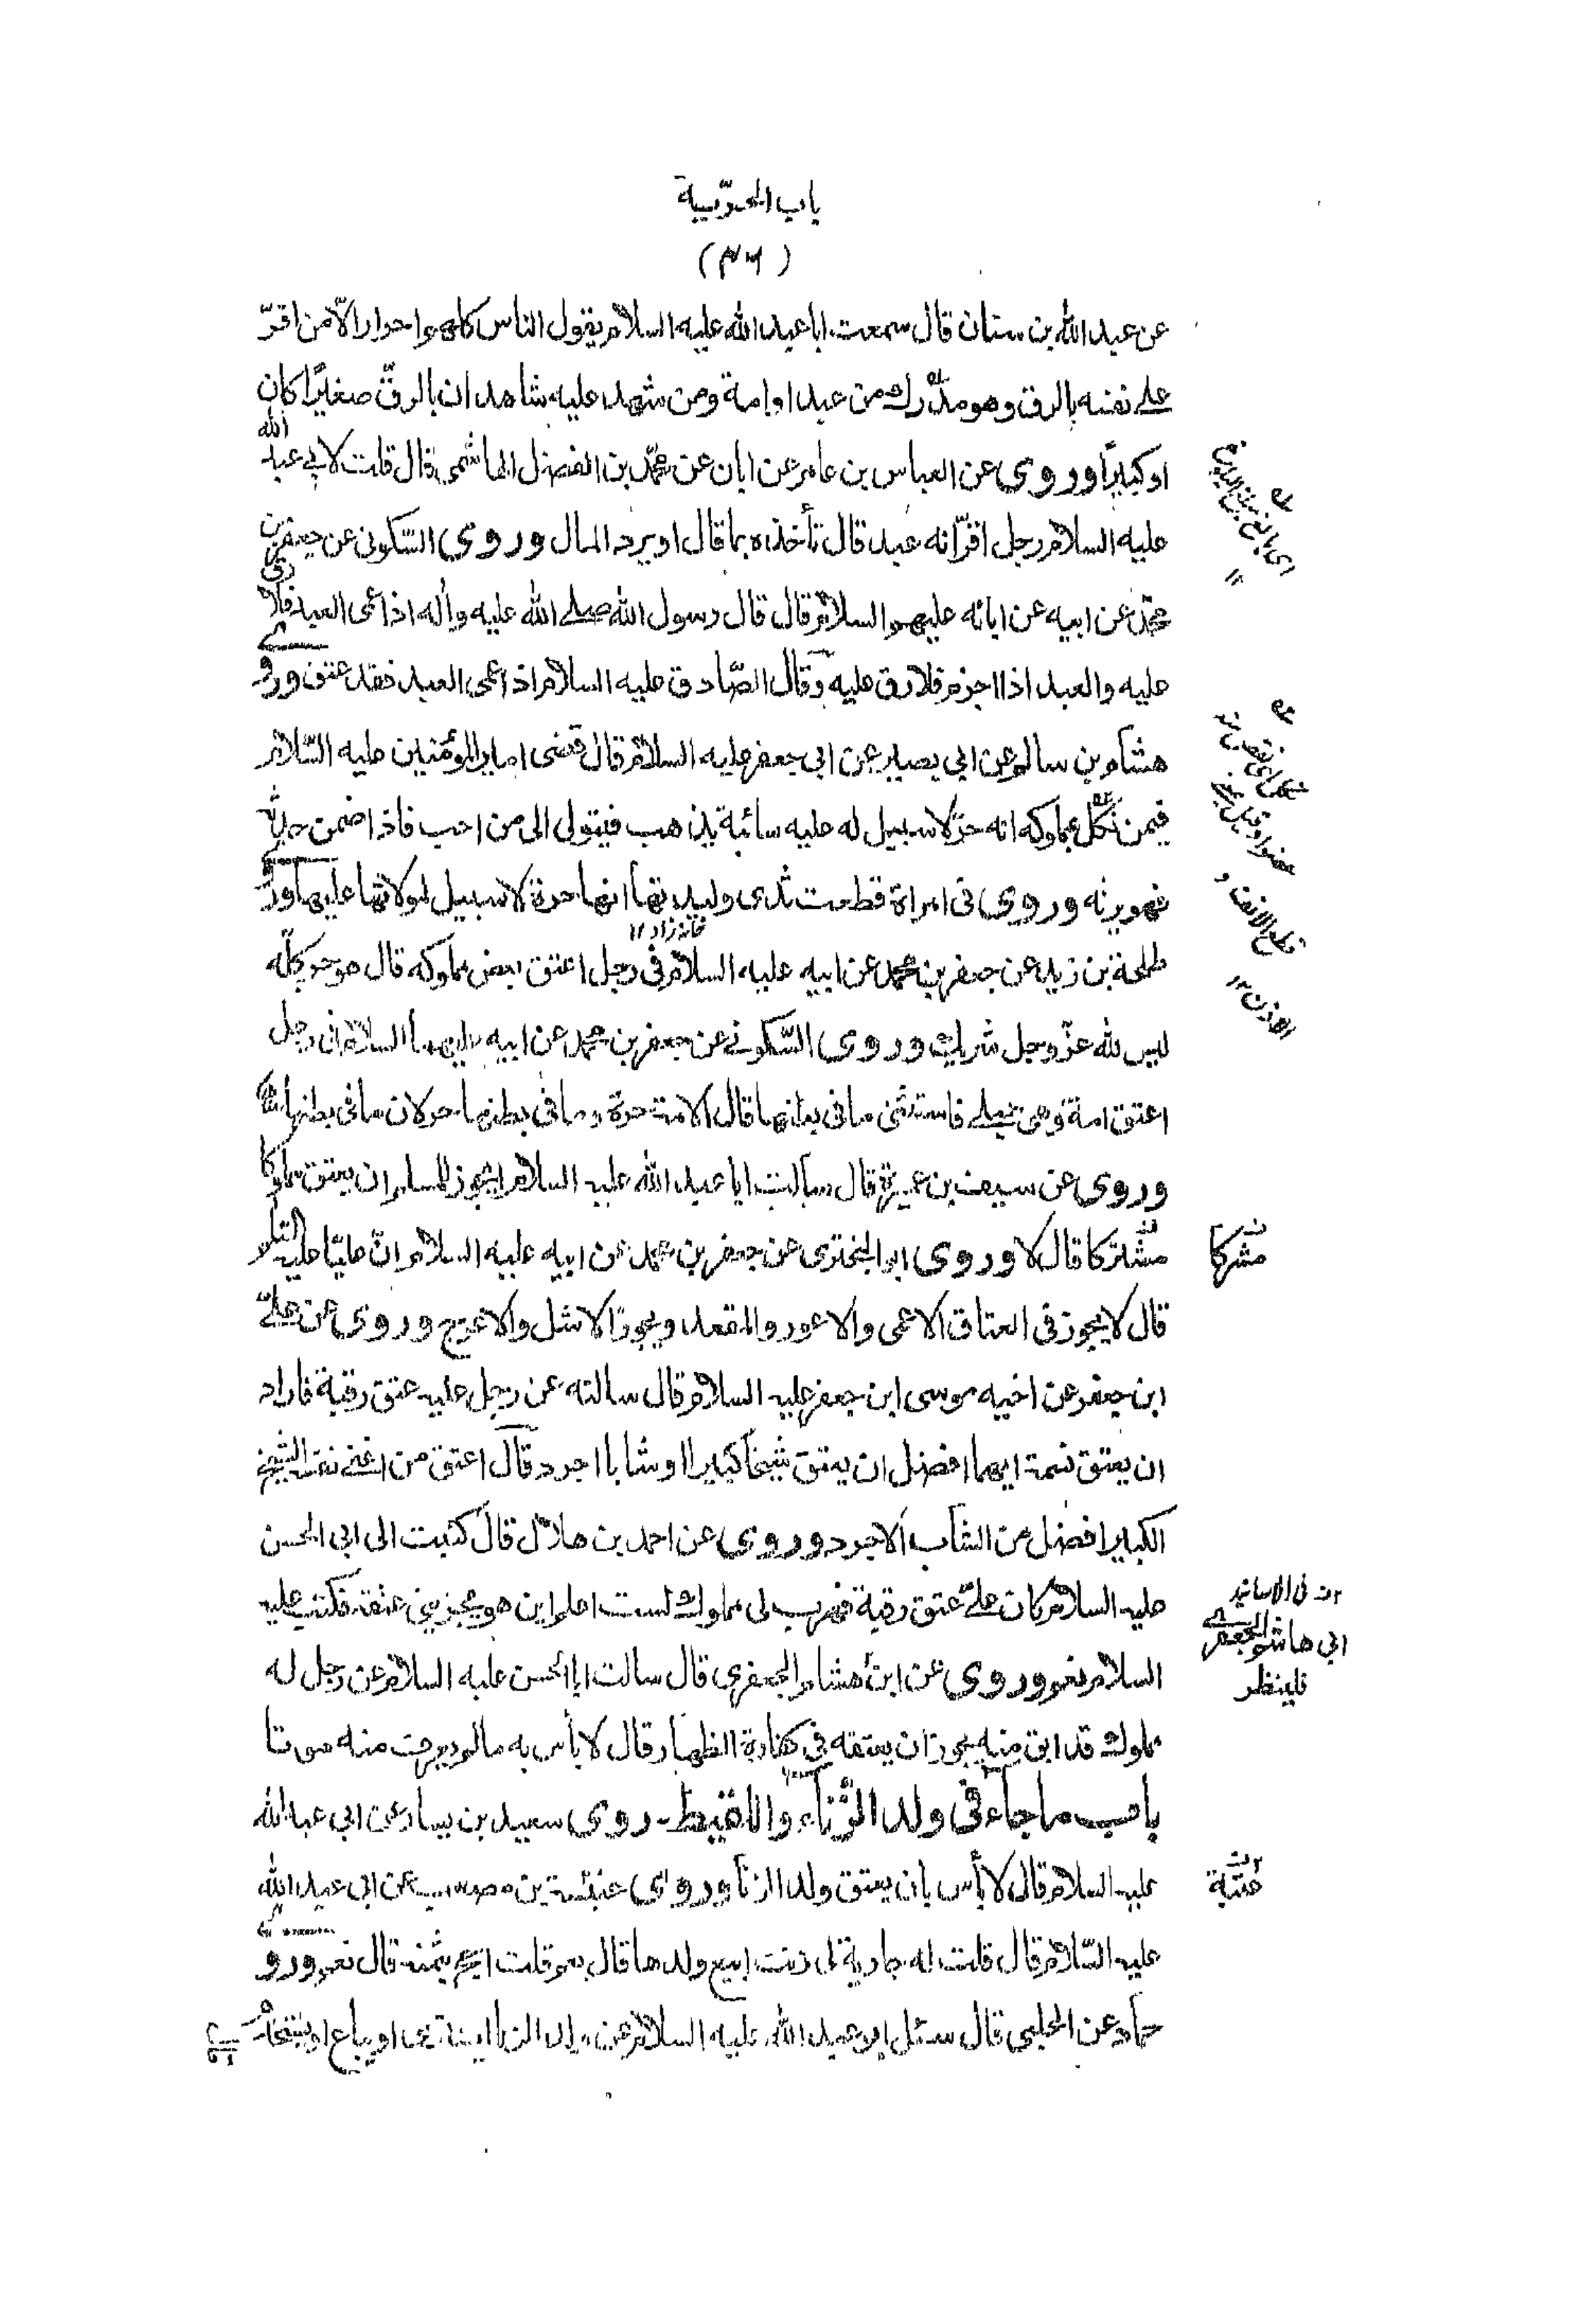 باب الحرّية
(٤٦)
عن عبد الله بن سنان قال سمعت ابا عبد الله عليه السلام يقول الناس كلهم احرار الّا من اقرّ
على نفسه بالرق وهو مدرك من عبد او امة ومن شهد عليه شاهدان بالرقّ صغيرًا كان
او كبيرًا وروى عن العباس بن عامر عن ابان عن محمّد بن الفضل الهاشمى قال قلت لابي عبد الله
عليه السلام رجل اقرّ انه عبد قال تأخذه بما قال او يرد المال وروى السّكونى عن جعفر بن
محمّد عن ابيه عن ابائه عليهم السلام قال قال رسول الله صلى الله عليه وأله اذا عمى العبد فلا رق
عليه والعبد اذا اجزم فلا رق عليه وقال الصّادق عليه السلام اذا عمى العبد فقد عتق وروى
هشام بن سالم عن ابي بصير عن ابى جعفر عليه السلام قال قضى امير المؤمنين عليه السّلام
فيمن نكّل بمملوكه انه حرّ لا سبيل له عليه سائبة يذهب فيتولى الى من احب فاذا ضمن حدثه
فهو يرثه وروى فى امراة قطعت ثدى وليدتها انها حرة لا سبيل لمولاتها عليها وروى
خانه زاد ١٢
طلحة بن زيد عن جعفر بن محمد عن ابيه عليه السلام فى رجل اعتق بعض مملوكه قال هو حر كلّه
ليس لله عزّ وجل شريك وروى السّكونے عن جعفر بن محمد عن ابيه عليهما السلام فى رجل
اعتق امة وهى حبلے فاستثنى ما فى بطنها قال الامة حرة وما فى بطنها حر لان ما فى بطنها منها
وروى عن سيف بن عميرة قال سألت ابا عبد الله عليه السلام ايجوز للمسلم ان يعتق مملوكا
مشتركا قال لا وروى ابو البخترى عن جعفر بن محمد عن ابيه عليه السلام انّ عليّا عليه السلام
قال لا يجوز فى العتاق الاعمى والاعور والمقعد ويجوز الاشل والاعرج وروى عن علىّ
ابن جعفر عن اخيه موسى ابن جعفر عليه السلام قال سالته عن رجل عليه عتق رقبة فاراد
ان يعتق نسمة ايهما افضل ان يعتق شيخًا كبيرا او شابا اجرد قال اعتق من اغنى نفسه الشيخ
الكبير افضل من الشاب الاجرد وروى عن احمد بن هلال قال كتبت الى ابى الحسن
عليه السلام كان علىّ عتق رقبة فهرب لى مملوك لست اعلم اين هو يجزينى عتقه فكتب عليه
السلام نعم وروى عن ابى هشام الجعفرى قال سالت ابا الحسن عليه السلام عن رجل له
مملوك قد ابق منه يجوز ان يعتقه فى كفارة الظهار قال لا بأس به ما لم يعرف منه موتا
باب ما جاء فى ولد الزّناء واللقيط - روى سعيد بن يسار عن ابى عبد الله
عليه السلام قال لا بأس بان يعتق ولد الزنا وروى عنبسة بن مصعب عن ابى عبد الله
عليه السّلام قال قلت له جارية لى زنت ابيع ولدها قال نعم قلت احج بثمنه قال نعم وروى
حمّاد عن الحلبى قال سئل ابو عبد الله عليه السلام عن ولد الزنا ايشترى او يباع او يستخدم
اى بالغ
قطع الانف و
الاذن ١٢
مشركا
فى الاسانيد
ابى هاشم الجعفرى
فلينظر